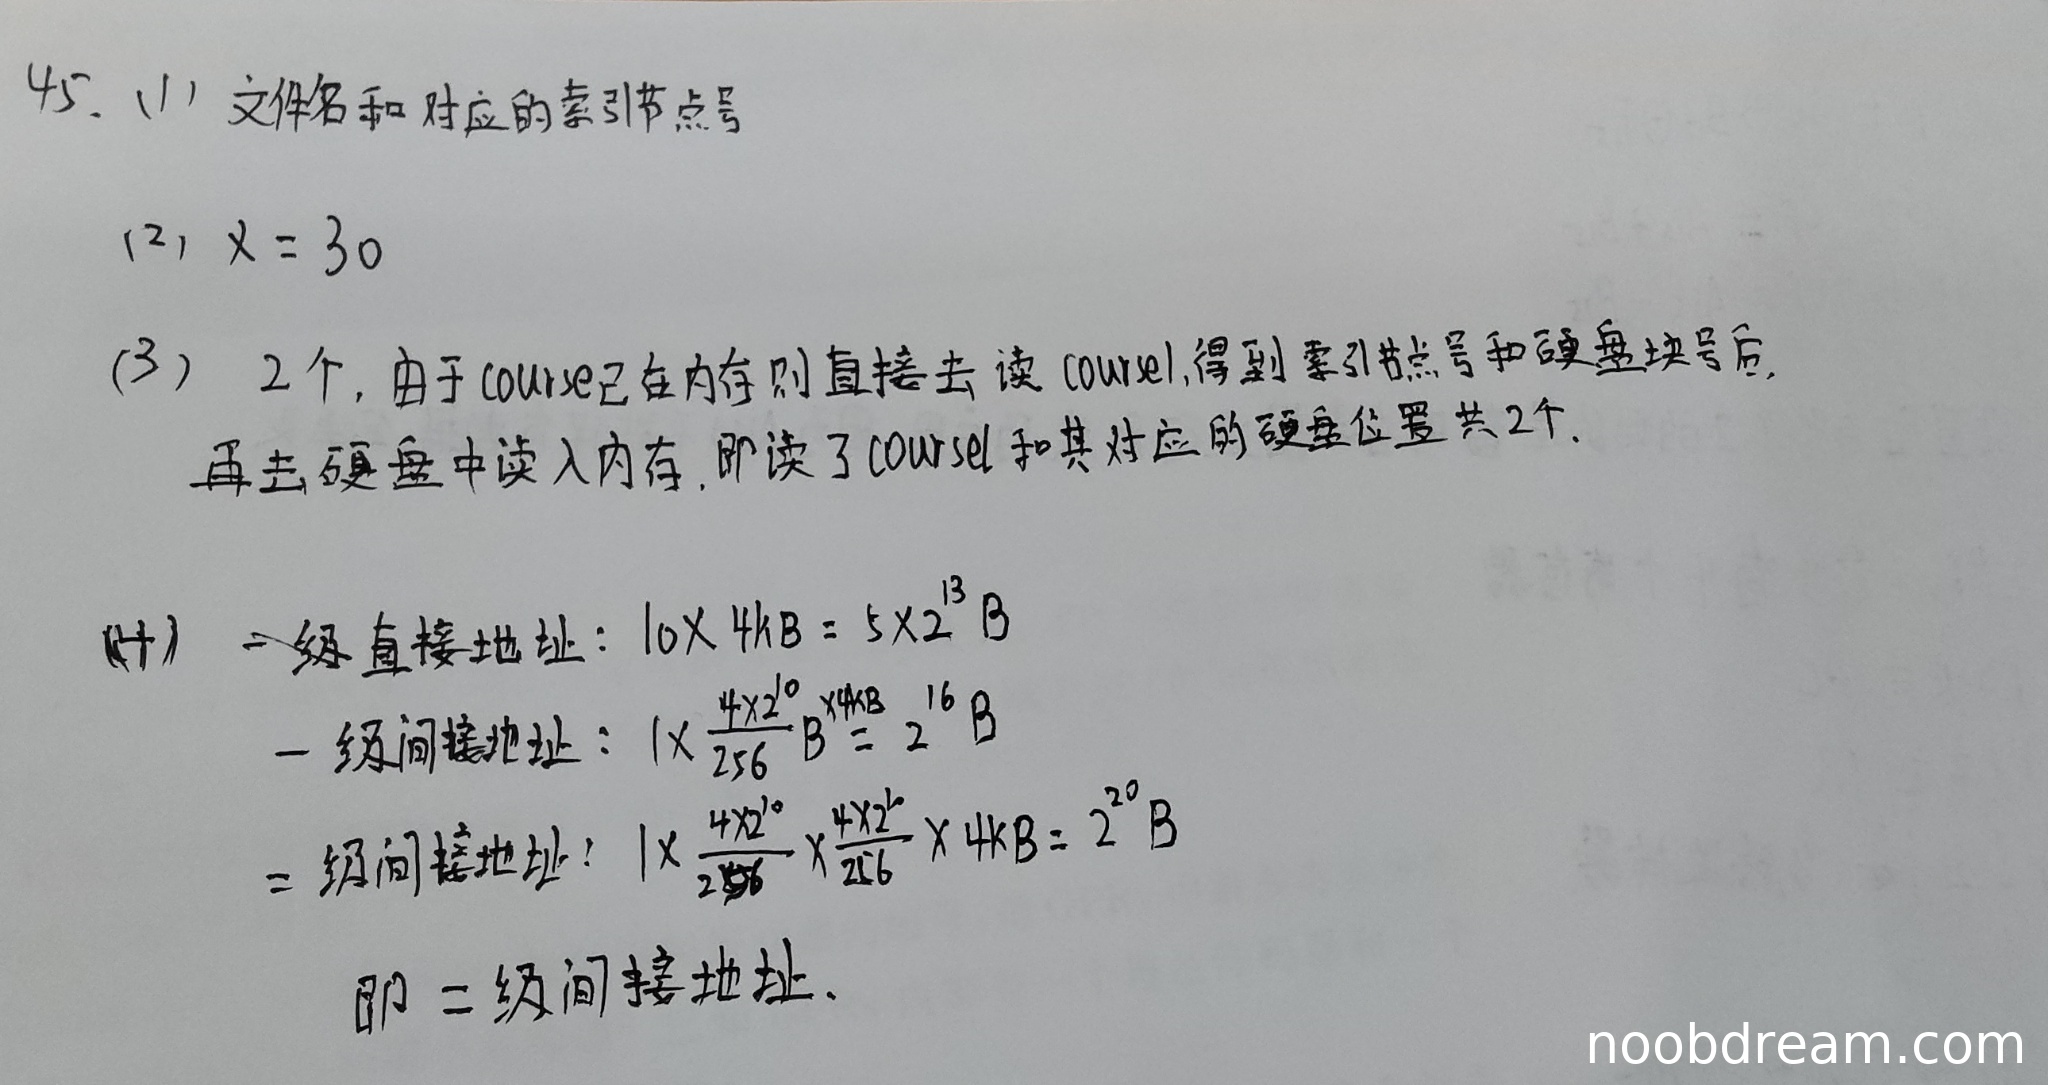 45. (1) 文件名和对应的索引节点号
(2) x = 30
(3) 2个, 由于course已在内存则直接去读 course1,得到索引节点号和硬盘块号后,
再去硬盘中读入内存,即读了course1和其对应的硬盘位置共2个.
(4) 一级直接地址: 10×4kB = 5×2^13 B
一级间接地址: 1× 4×2^10/256 B ×4kB = 2^16 B
二级间接地址: 1× 4×2^10/256 × 4×2^10/256 × 4kB = 2^20 B
即二级间接地址.
noobdream.com